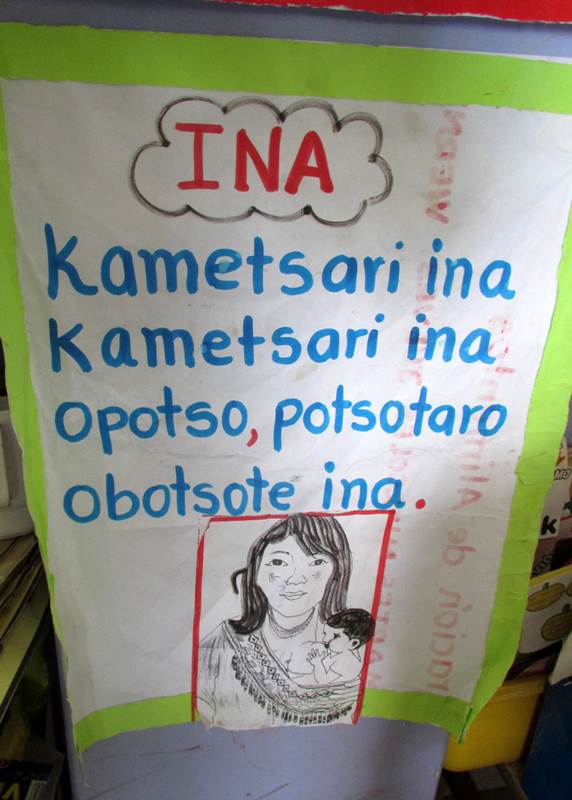 INA
Kametsari ina
Kametsari ina
Opotso, potsotaro
Obotsote ina.